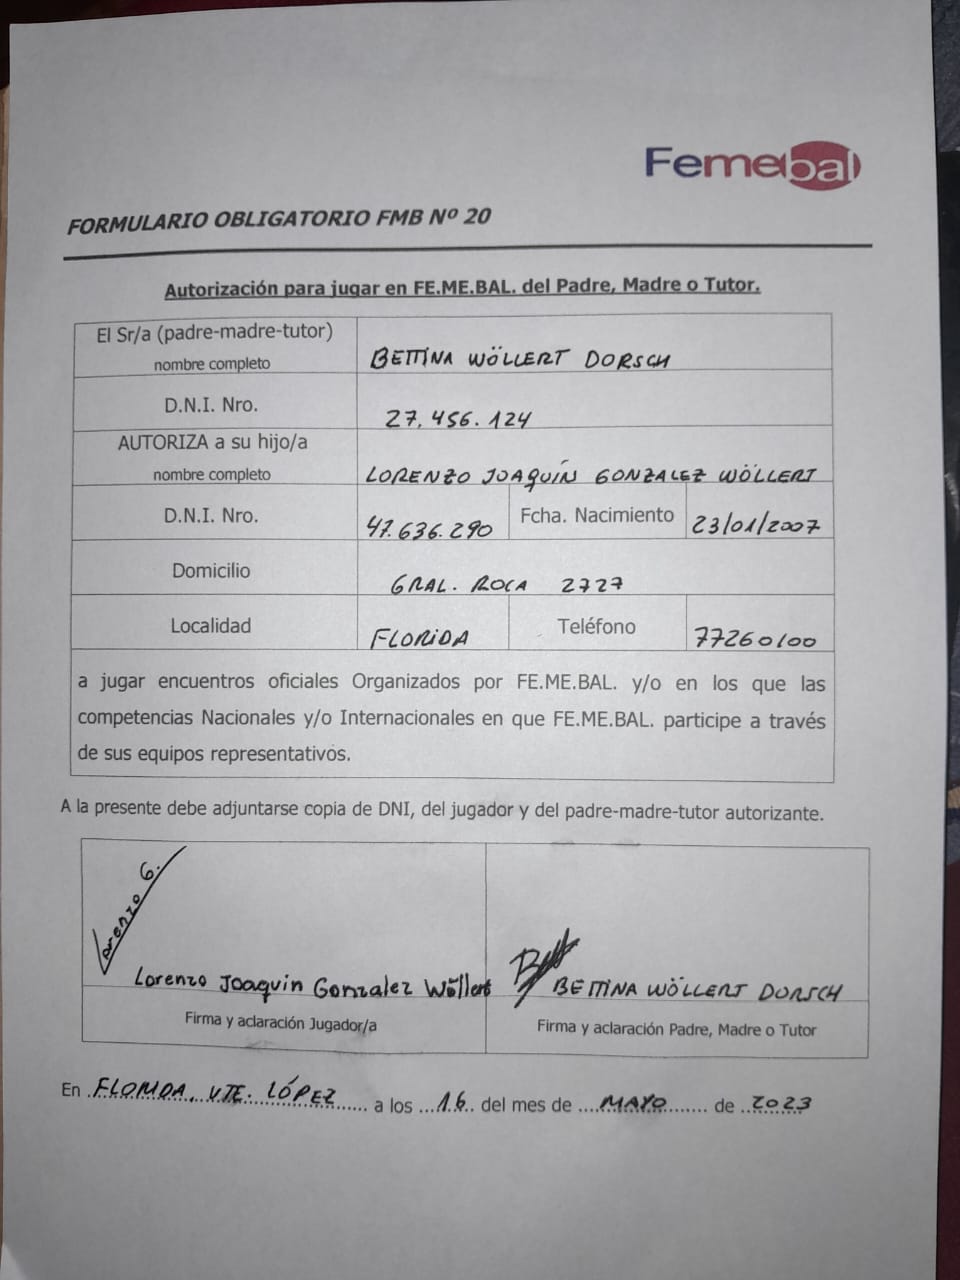 Femebal
FORMULARIO OBLIGATORIO FMB Nº 20
Autorización para jugar en FE.ME.BAL. del Padre, Madre o Tutor.
El Sr/a (padre-madre-tutor)
nombre completo
BETTINA WÖLLERT DORSCH
D.N.I. Nro.
27.456.124
AUTORIZA a su hijo/a
nombre completo
LORENZO JOAQUÍN GONZALEZ WÖLLERT
D.N.I. Nro.
47.636.290
Fcha. Nacimiento
23/01/2007
Domicilio
GRAL. ROCA 2727
Localidad
FLORIDA
Teléfono
77260100
a jugar encuentros oficiales Organizados por FE.ME.BAL. y/o en los que las
competencias Nacionales y/o Internacionales en que FE.ME.BAL. participe a través
de sus equipos representativos.
A la presente debe adjuntarse copia de DNI, del jugador y del padre-madre-tutor autorizante.
Lorenzo G.
Lorenzo Joaquin Gonzalez Wöllert
Firma y aclaración Jugador/a
Bett
BETTINA WÖLLERT DORSCH
Firma y aclaración Padre, Madre o Tutor
En FLORIDA, VTE. LÓPEZ a los 16 del mes de MAYO de 2023